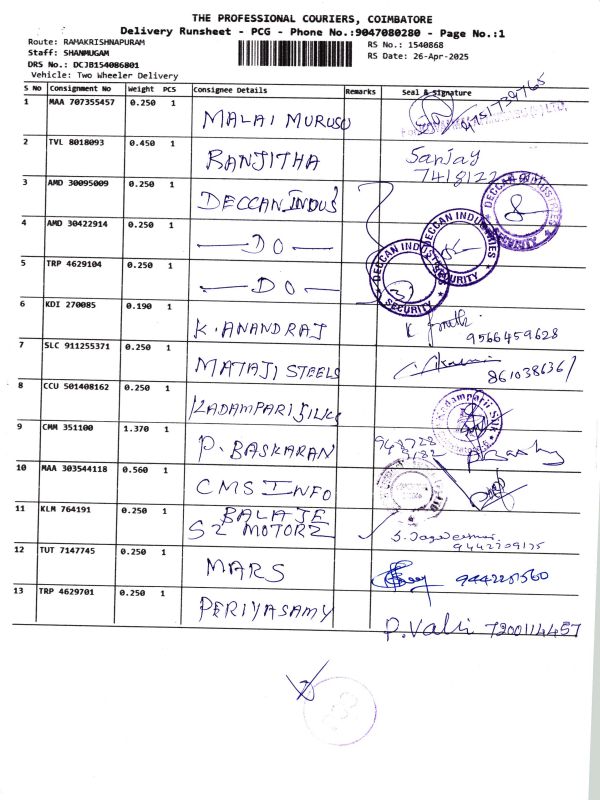 THE PROFESSIONAL COURIERS, COIMBATORE
Delivery Runsheet - PCG - Phone No.:9047080280 - Page No.:1
Route: RAMAKRISHNAPURAM
RS No.: 1540868
Staff: SHANMUGAM
RS Date: 26-Apr-2025
DRS No.: DCJB154086801
Vehicle: Two Wheeler Delivery
S No Consignment No Weight PCS Consignee Details Remarks Seal & Signature
1 MAA 707355457 0.250 1 MALAI MURUSU 9751739765
2 TVL 8018093 0.450 1 RANJITHA Sanjay
7418122
3 AMD 30095009 0.250 1 DECCAN INDUS DECCAN INDUSTRIES SECURITY
4 AMD 30422914 0.250 1 — DO — DECCAN INDUSTRIES SECURITY
5 TRP 4629104 0.250 1 — DO — DECCAN INDUSTRIES SECURITY
6 KDI 270085 0.190 1 K. ANANDRAJ K 9566459628
7 SLC 911255371 0.250 1 MATAJI STEELS 8610386361
8 CCU 501408162 0.250 1 KADAMPARI SILKS Kadamparii Silk
9 CMM 351100 1.370 1 P. BASKARAN 948728
5182
10 MAA 303544118 0.560 1 CMS INFO
11 KLM 764191 0.250 1 BALAJE
SZ MOTORZ 9442709175
12 TUT 7147745 0.250 1 MARS 9442251560
13 TRP 4629701 0.250 1 PERIYASAMY P. Valli 7200114457